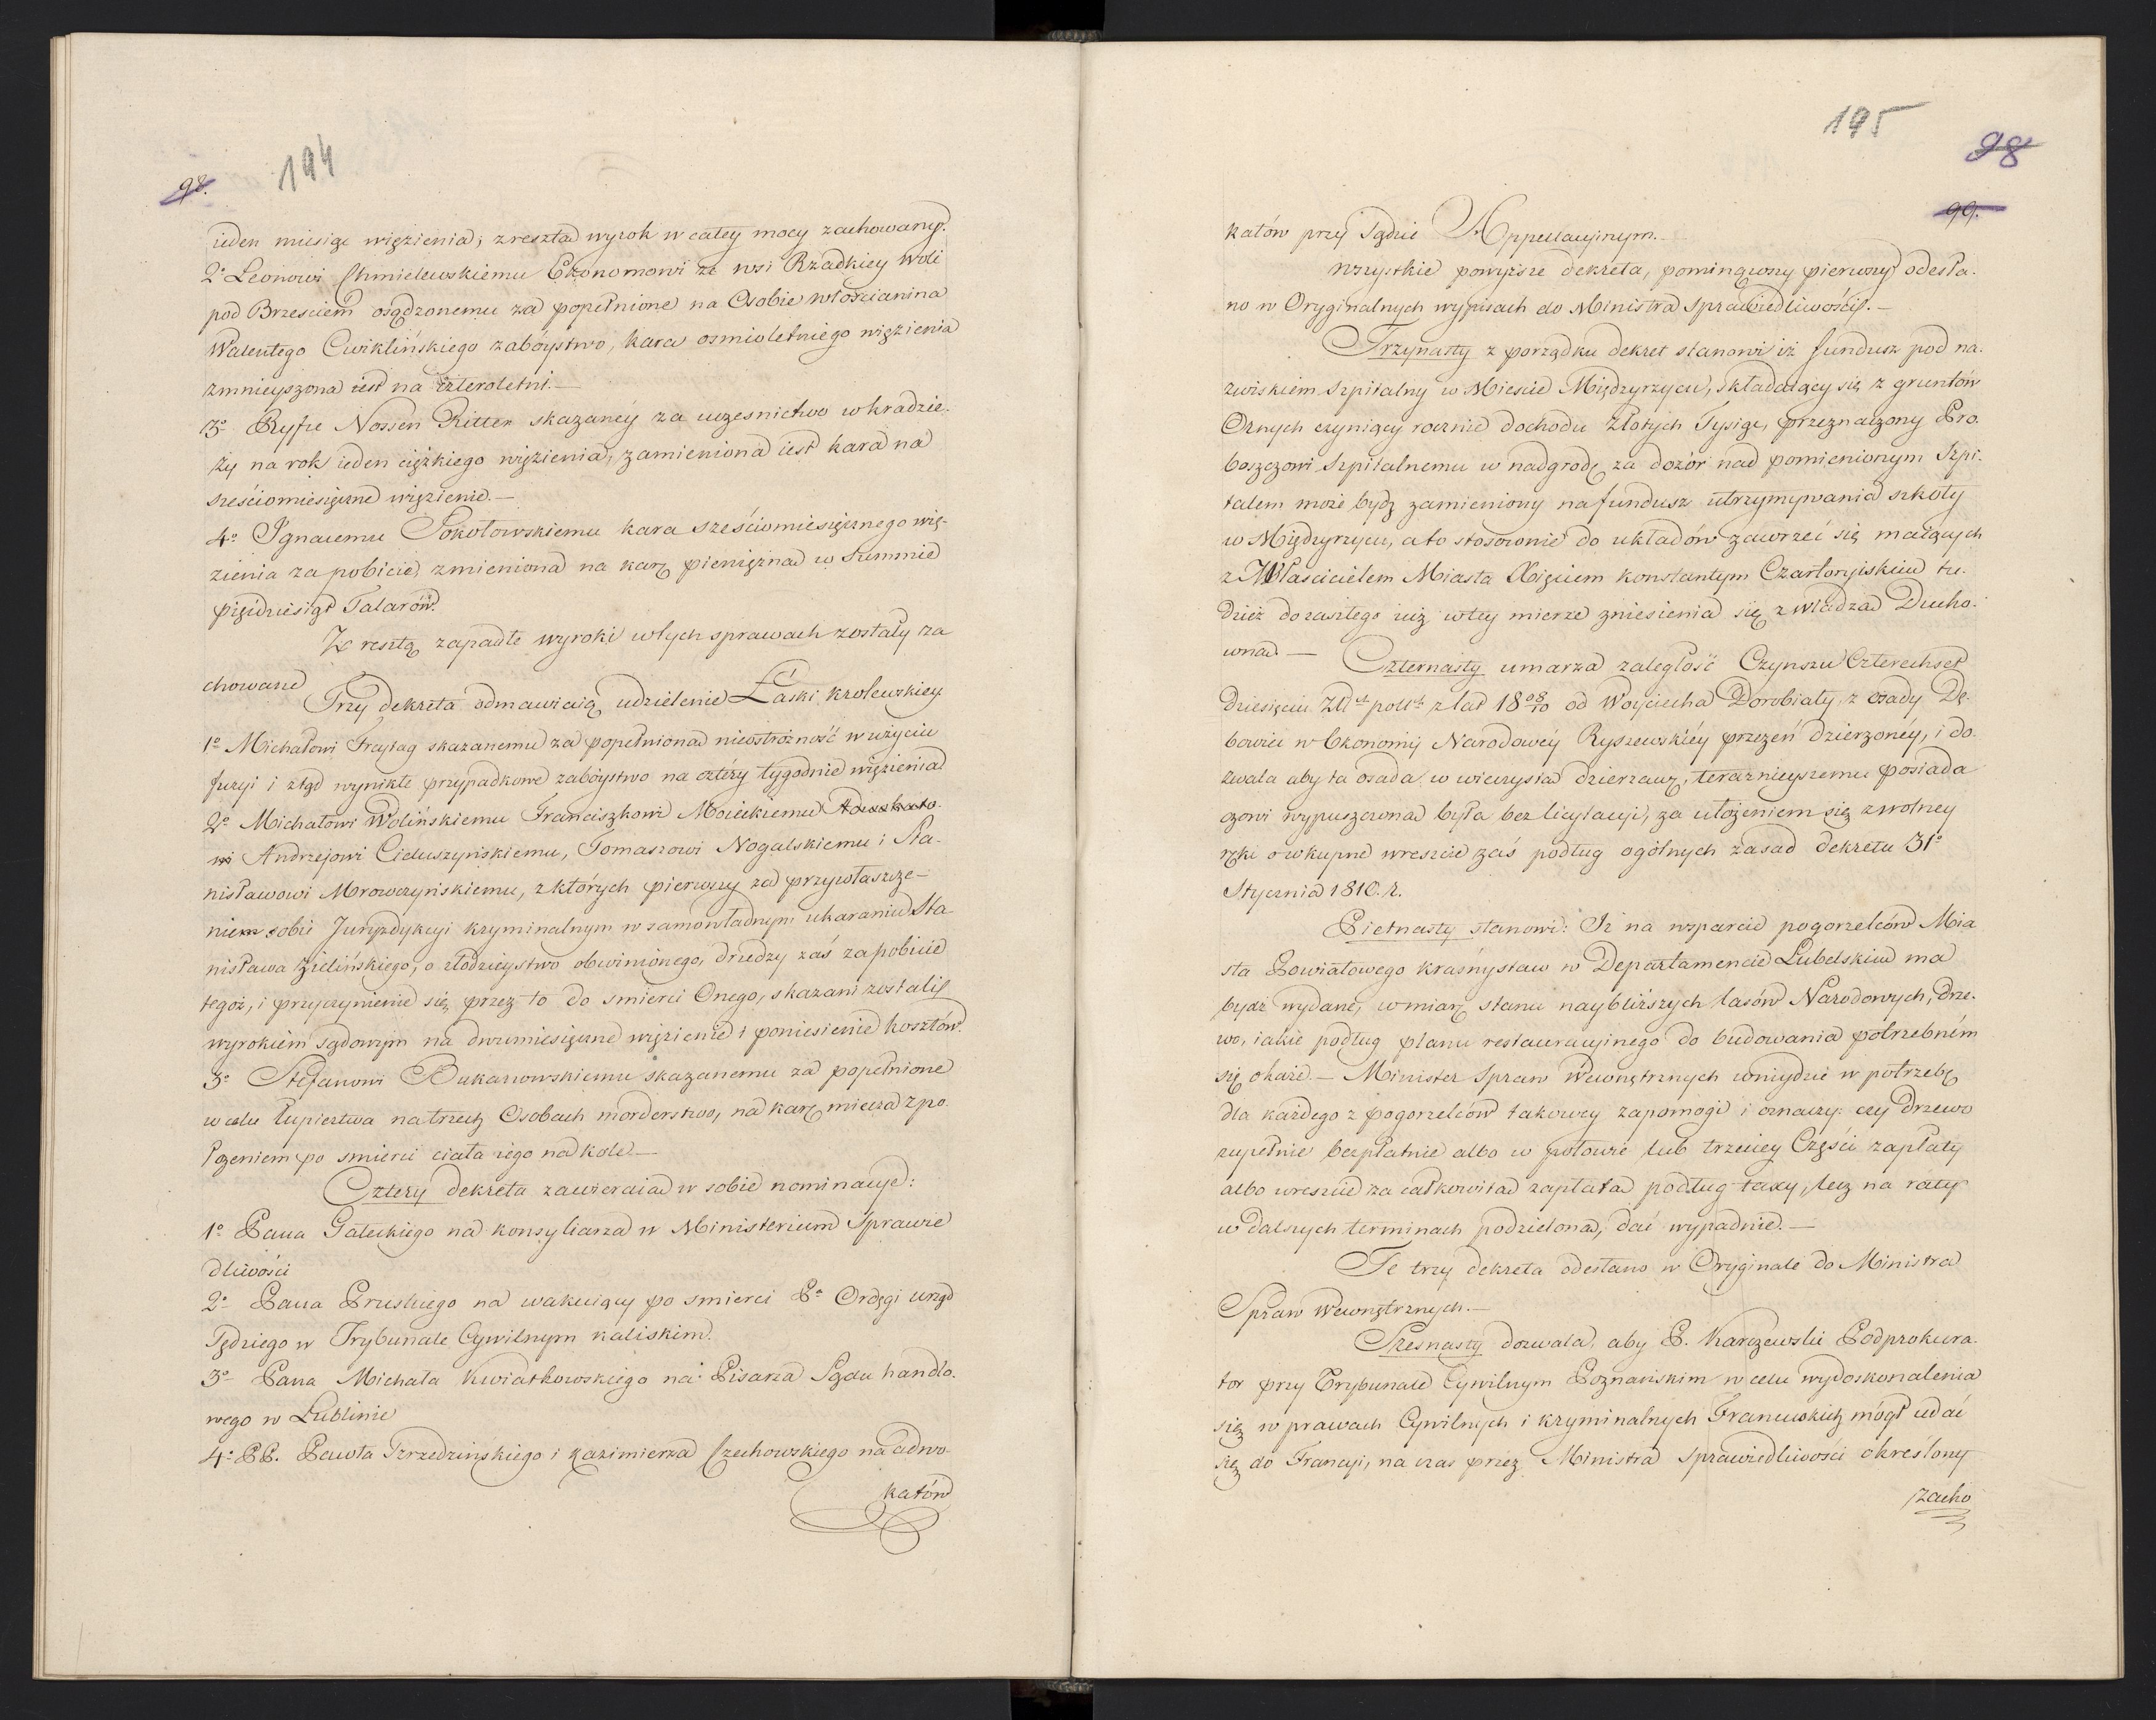 98.
194
ieden miesiąc więzienia; zresztą wyrok w całey mocy zachowany.
2o Leonowi Chmielewskiemu Ekonomowi ze wsi Rządkiey Woli
pod Brzesciem osądzonemu za popełnione na Osobie włościanina
Walentego Cwiklińskiego zabóystwo, kara osmioletniego więzienia
zmnieyszona iest na czteroletni.—
3o Ryfce Nossen Ritter skazanéy za uczesnictwo w kradzie-
ży na rok ieden ciężkiego więzienia, zamieniona iest kara na
sześciomiesięczne więzienie.—
4o Ignacemu Sokołowskiemu kara sześciomiesięcznego wię-
zienia za pobicie, zmieniona na karę pieniężną w Summie
pięćdziesiąt Talarów.
Ze resztą zapadłe wyroki w tych sprawach zostały za
chowane
Trzy dekreta odmawiaią udzielenie Łaski krolewskiey
1o Michałowi Fraytag skazanemu za popełnioną nieostrożność w użyciu
fuzyi i ztąd wynikłe przypadkowe zabóystwo na cztéry tygodnie więzienia
2o Michałowi Wolińskiemu Franciszkowi Mocickiemu Adwokato-
wi Andrzejowi Cieluszyńskiemu, Tomaszowi Nogalskiemu i Sta-
nisławowi Mrowczyńskiemu, z których pierwszy za przywłaszcze-
niem sobie Juryzdykcyi kryminalnym w samowładnym ukaraniu Sta-
nisława Zielińskiego, o złodzieystwo obwinionego, drudzy zaś za pobicie
tegoż, i przyczynienie się przez to do smierci Onego, skazani zostali
wyrokiem sądowym na dwumiesięczne więzienie i poniesienie kosztów.
3o Stefanowi Bukanowskiemu skazanemu za popełnione
w celu łupieztwa na trzech Osobach morderstwo, na karę miecza z po-
łożeniem po smierci ciała iego na kole—
Cztery dekreta zawieraią w sobie nominacye:
1o Pana Gałeckiego na konsyliarza w Ministerium Sprawie
dliwości
2o Pana Pruskiego na wakuiący po smierci Po Ordęgi urząd
Sędziego w Trybunale Cywilnym kaliskim.
3o Pana Michała Kwiatkowskiego na Pisarza Sądu handlo-
wego w Lublinie
4o PP. Pawła Szrzedzińskiego i Kazimierza Czechowskiego na adwo-
katów
195
98
99.
katów przy Sądzie Appellacyinym.—
Wszystkie powyższe dekreta, pominąwszy pierwszy odesła-
no w Oryginalnych wypisach do Ministra Sprawiedliwości.—
Trzynasty z porządku dekret stanowi iż fundusz pod na-
zwiskiem Szpitalny w Miescie Międzyrzycu, składaiący się z gruntów
Ornych czyniący rocznie dochodu złotych Tysiąc, przeznaczony Pro-
boszczowi Szpitalnemu w nadgrodę za dozór nad pomienionym Szpi-
talem może bydź zamieniony na fundusz utrzymywania szkoły
w Międzyrzycu, a to stosownie do układów zawrzeć się maiących
z Właścicielem Miasta Xięciem konstantym Czartoryiskim tu-
dzież do zaszłego iuż w tey mierze zniesienia się z władzą Ducho-
wną.—
Czternasty umarza zaległość Czynszu Czterechset
dziesięciu Złch polch z lat 1808/10 od Woyciecha Dorobiały z osady Dę-
bowiec w Ekonomij Narodowéy Ryszewskiéy przezeń dzierzonéy, i do-
zwala aby ta osada w wieczystą dzierzawę, teraznieyszemu posiada
czowi wypuszczona była bez licytacyi, za ułożeniem się z wolney
ręki o wkupne wreszcie zaś podług ogólnych zasad dekretu 31o
Stycznia 1810. r.
Pietnasty stanowi: Iż na wsparcie pogorzelców Mia
sta Powiatowego krasnystaw w Departamencie Lubelskim ma
bydź wydane, w miarę stanu naybliższych lasów Narodowych, drze-
wo, iakie podług planu restauracyinego do budowania potrzebném
się okaże.— Minister Spraw Wewnętrznych wniydzie w potrzebę
dla każdego z pogorzelców takowey zapomogi i oznaczy: czy drzewo
zupełnie bezpłatnie albo w połowie lub trzeciey Części zapłaty
albo wreszcie za całkowitą zapłatą podług taxy, lecz na raty
w dalszych terminach podzieloną, dać wypadnie.—
Te trzy dekreta odesłano w Oryginale do Ministra
Spraw Wewnętrznych.—
Szesnasty dozwala, aby P. Karczewski Podprokura-
tor przy Trybunale Cywilnym Poznańskim w celu wydoskonalenia
się w prawach Cywilnych i kryminalnych Francuskich mógł udać
się do Francyi, na czas przez Ministra Sprawiedliwości określony
zacho